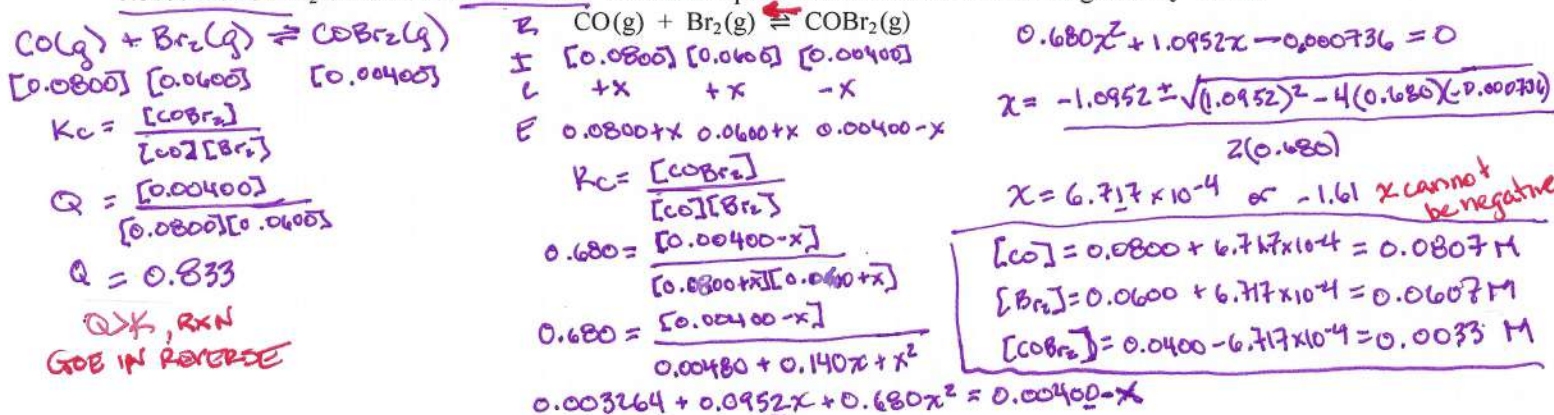 CO(g) + Br₂(g) ⇌ COBr₂(g)
[0.0800] [0.0600] [0.00400]
Kc = [COBr₂] / [CO][Br₂]
Q = [0.00400] / [0.0800][0.0600]
Q = 0.833
Q>K, RXN
GOE IN REVERSE
R CO(g) + Br₂(g) ⇌ COBr₂(g)
I [0.0800] [0.0600] [0.00400]
C +x +x -x
E 0.0800+x 0.0600+x 0.00400-x
Kc = [COBr₂] / [CO][Br₂]
0.680 = [0.00400-x] / [0.0800+x][0.0600+x]
0.680 = [0.00400-x] / 0.00480 + 0.140x + x²
0.003264 + 0.0952x + 0.680x² = 0.00400-x
0.680x² + 1.0952x - 0.000736 = 0
x = -1.0952 ± √(1.0952)² - 4(0.680)(-0.000736) / 2(0.680)
x = 6.717 x 10⁻⁴ or -1.61 x cannot
be negative
[CO] = 0.0800 + 6.717x10⁻⁴ = 0.0807 M
[Br₂] = 0.0600 + 6.717x10⁻⁴ = 0.0607 M
[COBr₂] = 0.0400 - 6.717x10⁻⁴ = 0.0033 M